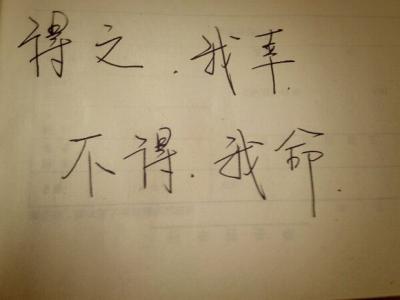 得之.我幸.
不得.我命.